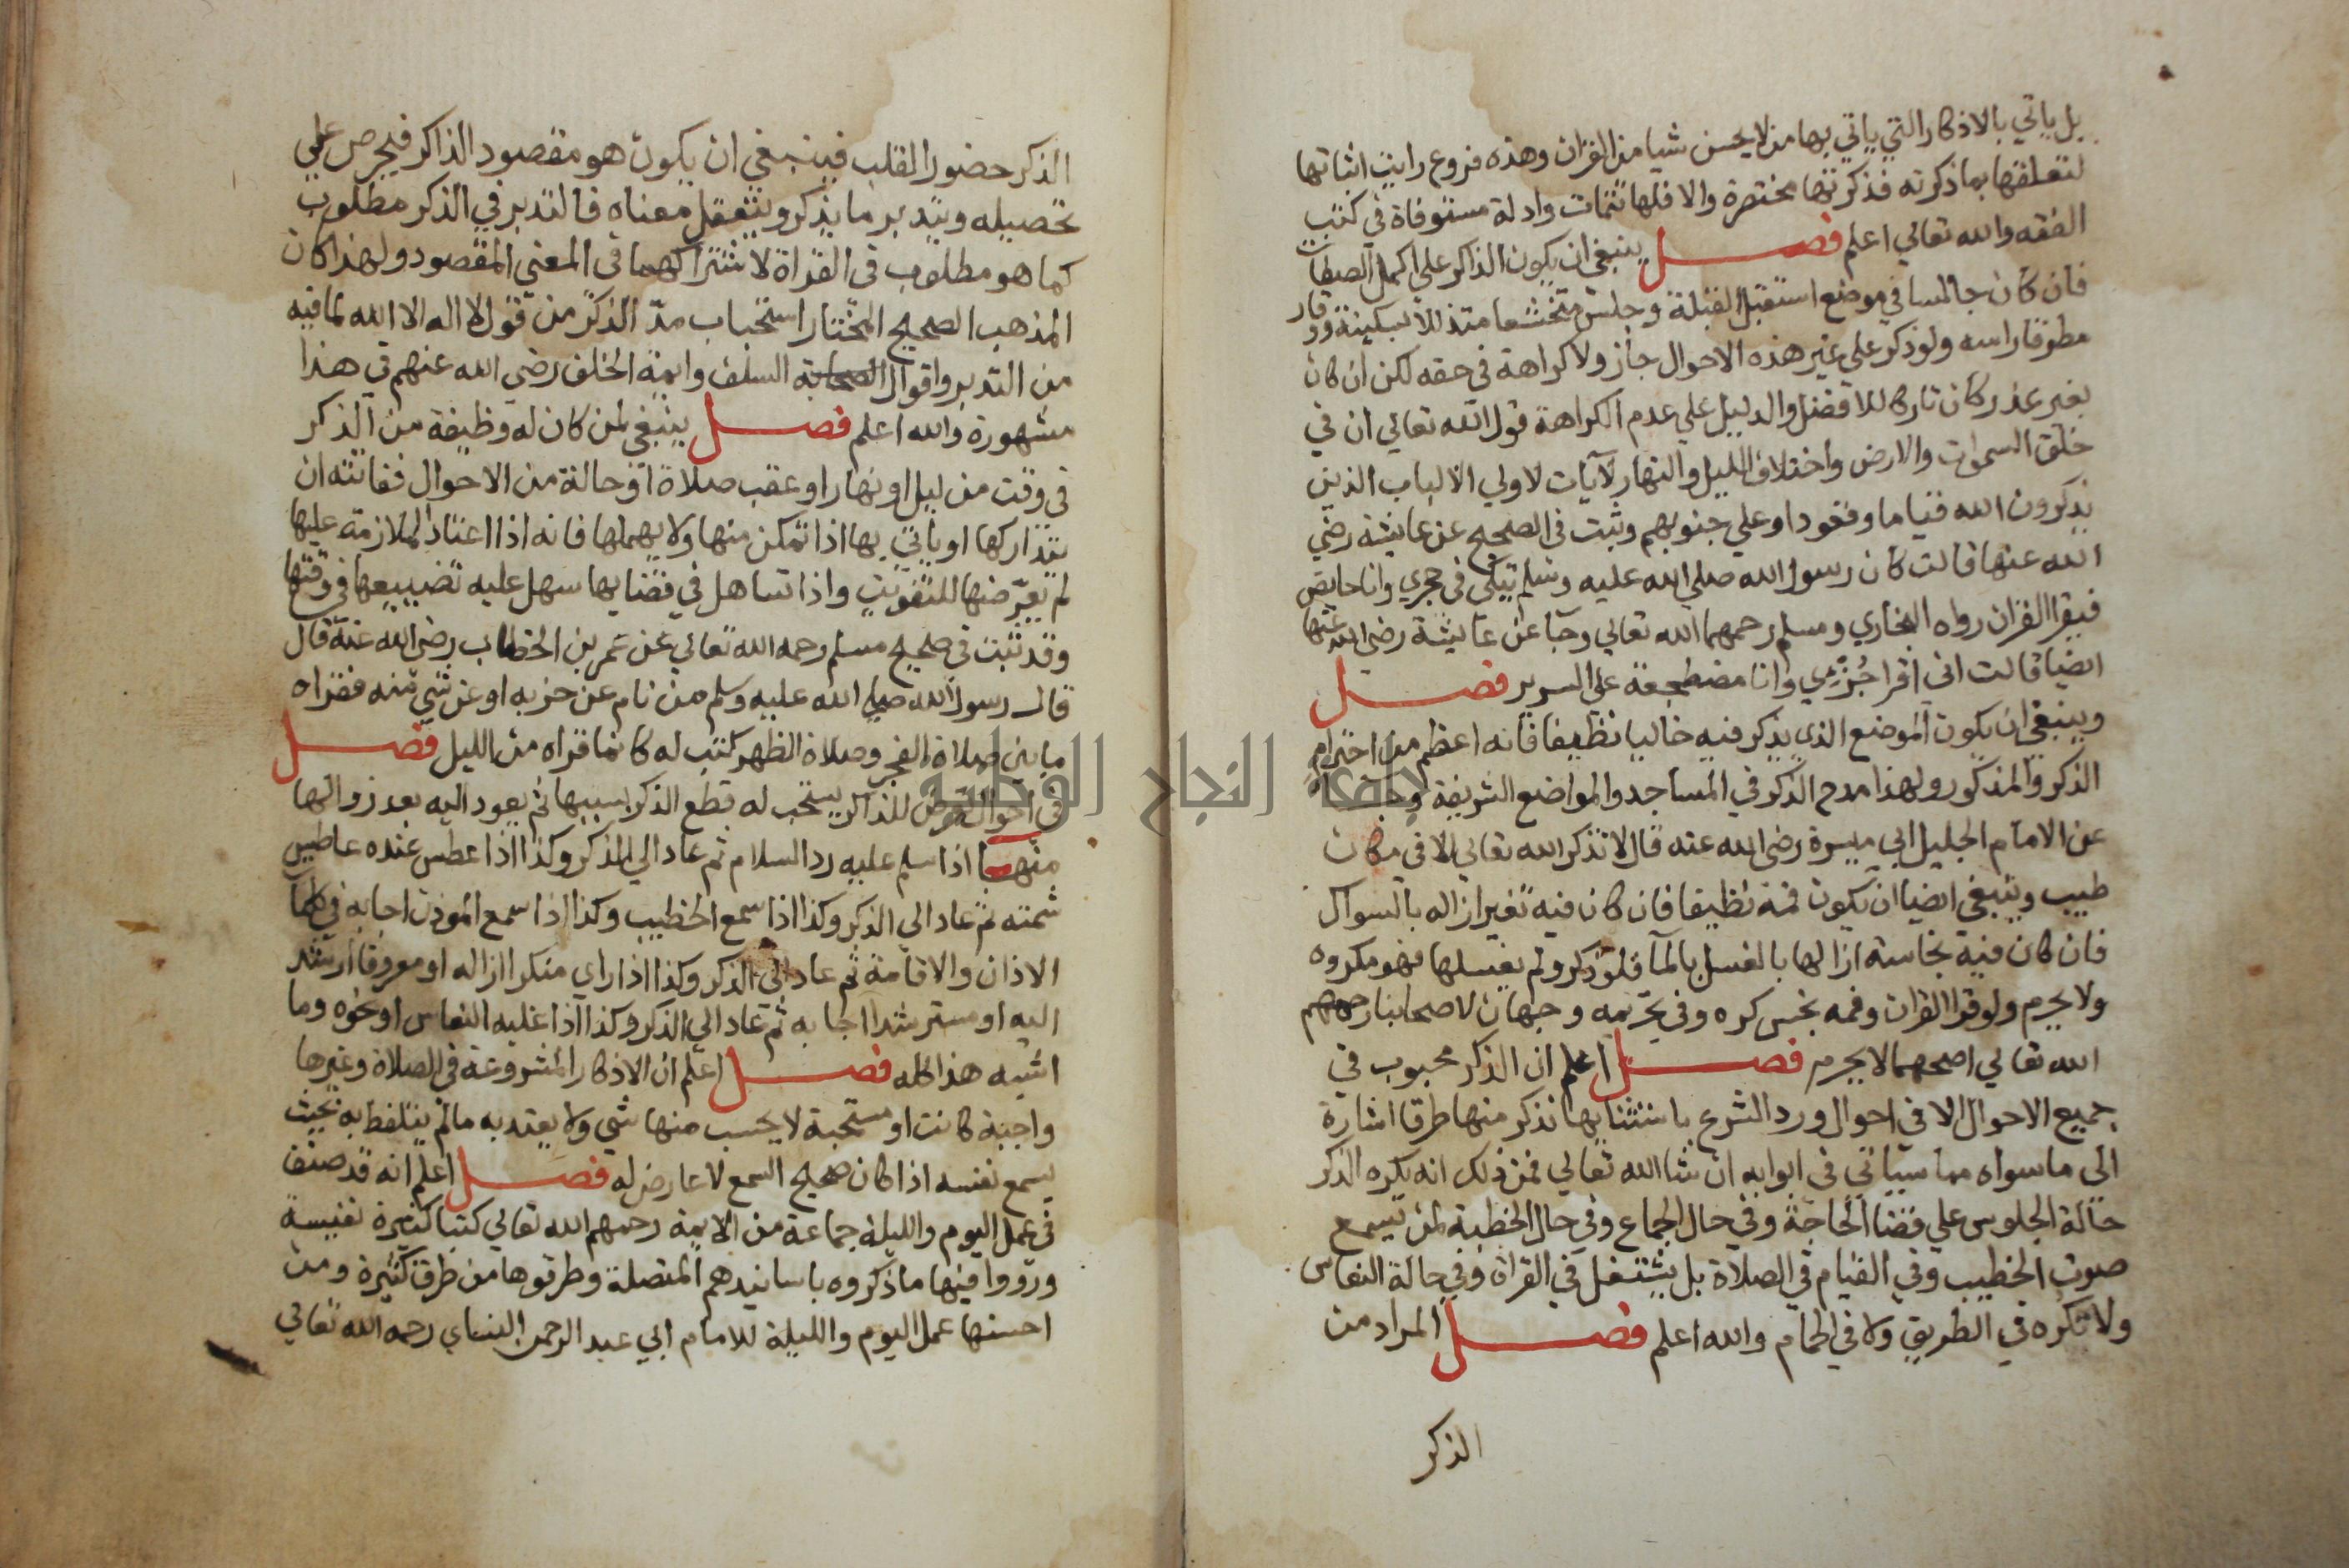 بل ياتي بالاذكار التي ياتي بها من لا يحسن شيا من القران وهذه فروع رايت اثباتها
لتعلقها بما ذكرته فذكرتها مختصرة والا فلها تتمات وادلة مستوفاة في كتب
الفقه والله تعالي اعلم فصل ينبغي ان يكون الذاكر علي اكمل الصفات
فان كان جالسا في موضع استقبل القبلة وجلس متخشعا متذللا بسكينة ووقار
مطرقا راسه ولو ذكر علي غير هذه الاحوال جاز ولا كراهة في حقه لكن ان كان
بغير عذر كان تاركا للافضل والدليل علي عدم الكراهة قول الله تعالي ان في
خلق السموات والارض واختلاف الليل والنهار لآيات لاولي الالباب الذين
يذكرون الله قياما وقعودا وعلي جنوبهم وثبت في الصحيح عن عايشة رضي
الله عنها قالت كان رسول الله صلي الله عليه وسلم يتكي في حجري وانا حايض
فيقرا القران رواه البخاري ومسلم رحمهما الله تعالي وجآ عن عايشة رضي الله عنها
ايضا قالت اني اقرا حزبي وانا مضطجعة علي السرير فصل
وينبغي ان يكون الموضع الذي يذكر فيه خاليا نظيفا فانه اعظم من احترام
الذكر والمذكور ولهذا مدح الذكر في المساجد والمواضع الشريفة وجآ
عن الامام الجليل ابي ميسرة رضي الله عنه قال لا تذكر الله تعالي الا في مكان
طيب وينبغي ايضا ان يكون فمه نظيفا فان كان فيه تغير ازاله بالسواك
فان كان فيه نجاسة ازالها بالغسل بالمآ فلو ذكر ولم يغسلها فهو مكروه
ولا يحرم ولو قرا القران وفمه نجس كره وفي تحريمه وجهان لاصحابنا رحمهم
الله تعالي اصحهما لا يحرم فصل اعلم ان الذكر محبوب في
جميع الاحوال الا في احوال ورد الشرع باستثنايها نذكر منها طرفا اشارة
الى ما سواه مما سياتي في ابوابه ان شا الله تعالي فمن ذلك انه يكره الذكر
حالة الجلوس علي قضا الحاجة وفي حال الجماع وفي حال الخطبة لمن يسمع
صوت الخطيب وفي القيام في الصلاة بل يشتغل في القراة وفي حالة النعاس
ولا تكره في الطريق ولا في الحمام والله اعلم فصل المراد من
الذكر
الذكر حضور القلب فينبغي ان يكون هو مقصود الذاكر فيحرص علي
تحصيله ويتدبر ما يذكر ويتعقل معناه فالتدبر في الذكر مطلوب
كما هو مطلوب في القراة لاشتراكهما في المعني المقصود ولهذا كان
المذهب الصحيح المختار استحباب مدّ الذكر من قول لا اله الا الله لما فيه
من التدبر واقوال الصحابة السلف وايمة الخلف رضي الله عنهم في هذا
مشهورة والله اعلم فصل ينبغي لمن كان له وظيفة من الذكر
في وقت من ليل او نهار او عقب صلاة او حالة من الاحوال ففاتته ان
يتداركها او ياتي بها اذا تمكن منها ولا يهملها فانه اذا اعتاد الملازمة عليها
لم يعرّضها للتفويت واذا تساهل في قضايها سهل عليه تضييعها في وقتها
وقد ثبت في صحيح مسلم رحمه الله تعالي عن عمر بن الخطاب رضي الله عنه قال
قال رسول الله صلي الله عليه وسلم من نام عن حزبه او عن شي منه فقراه
ما بين صلاة الفجر وصلاة الظهر كتب له كانما قراه من الليل فصل
في احوال تعرض للذاكر يستحب له قطع الذكر بسببها ثم يعود اليه بعد زوالها
منها اذا سلم عليه رد السلام ثم عاد الي الذكر وكذا اذا عطس عنده عاطس
شمته ثم عاد الي الذكر وكذا اذا سمع الخطيب وكذا اذا سمع الموذن اجابه في كلمات
الاذان والاقامة ثم عاد الى الذكر وكذا اذا راي منكرا ازاله او معروفا ارشد
اليه او مسترشدا اجابه ثم عاد الي الذكر وكذا اذا غلبه النعاس او نحوه وما
اشبه هذا كله فصل اعلم ان الاذكار المشروعة في الصلاة وغيرها
واجبة كانت او مستحبة لا يحسب منها شي ولا يعتد به ما لم يتلفظ به بحيث
يسمع نفسه اذا كان صحيح السمع لا عارض له فصل اعلم انه قد صنف
في عمل اليوم والليلة جماعة من الايمة رحمهم الله تعالي كتبا كثيرة نفيسة
ورووا فيها ما ذكروه باسانيدهم المتصلة وطرقوها من طرق كثيرة ومن
احسنها عمل اليوم والليلة للامام ابي عبد الرحمن النساي رحمه الله تعالي
جامعة النجاح الوطنية